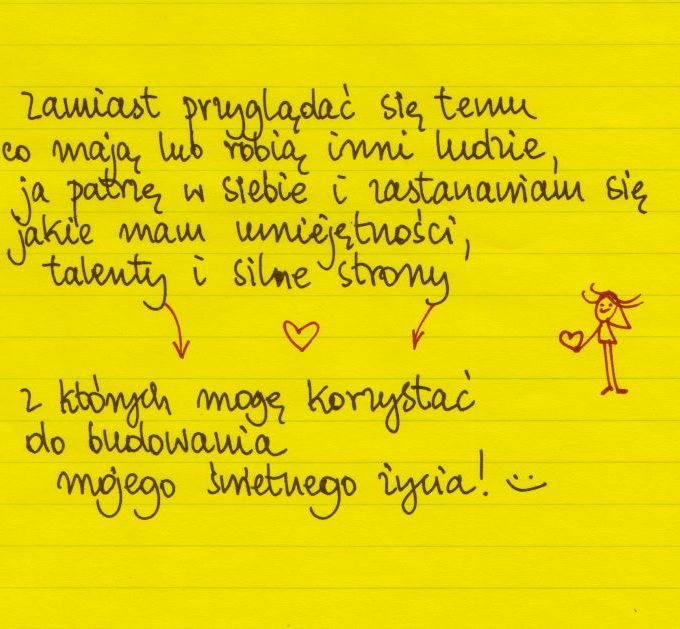 zamiast przyglądać się temu
co mają lub robią inni ludzie,
ja patrzę w siebie i zastanawiam się
jakie mam umiejętności,
talenty i silne strony
z których mogę korzystać
do budowania
mojego świetnego życia! :)